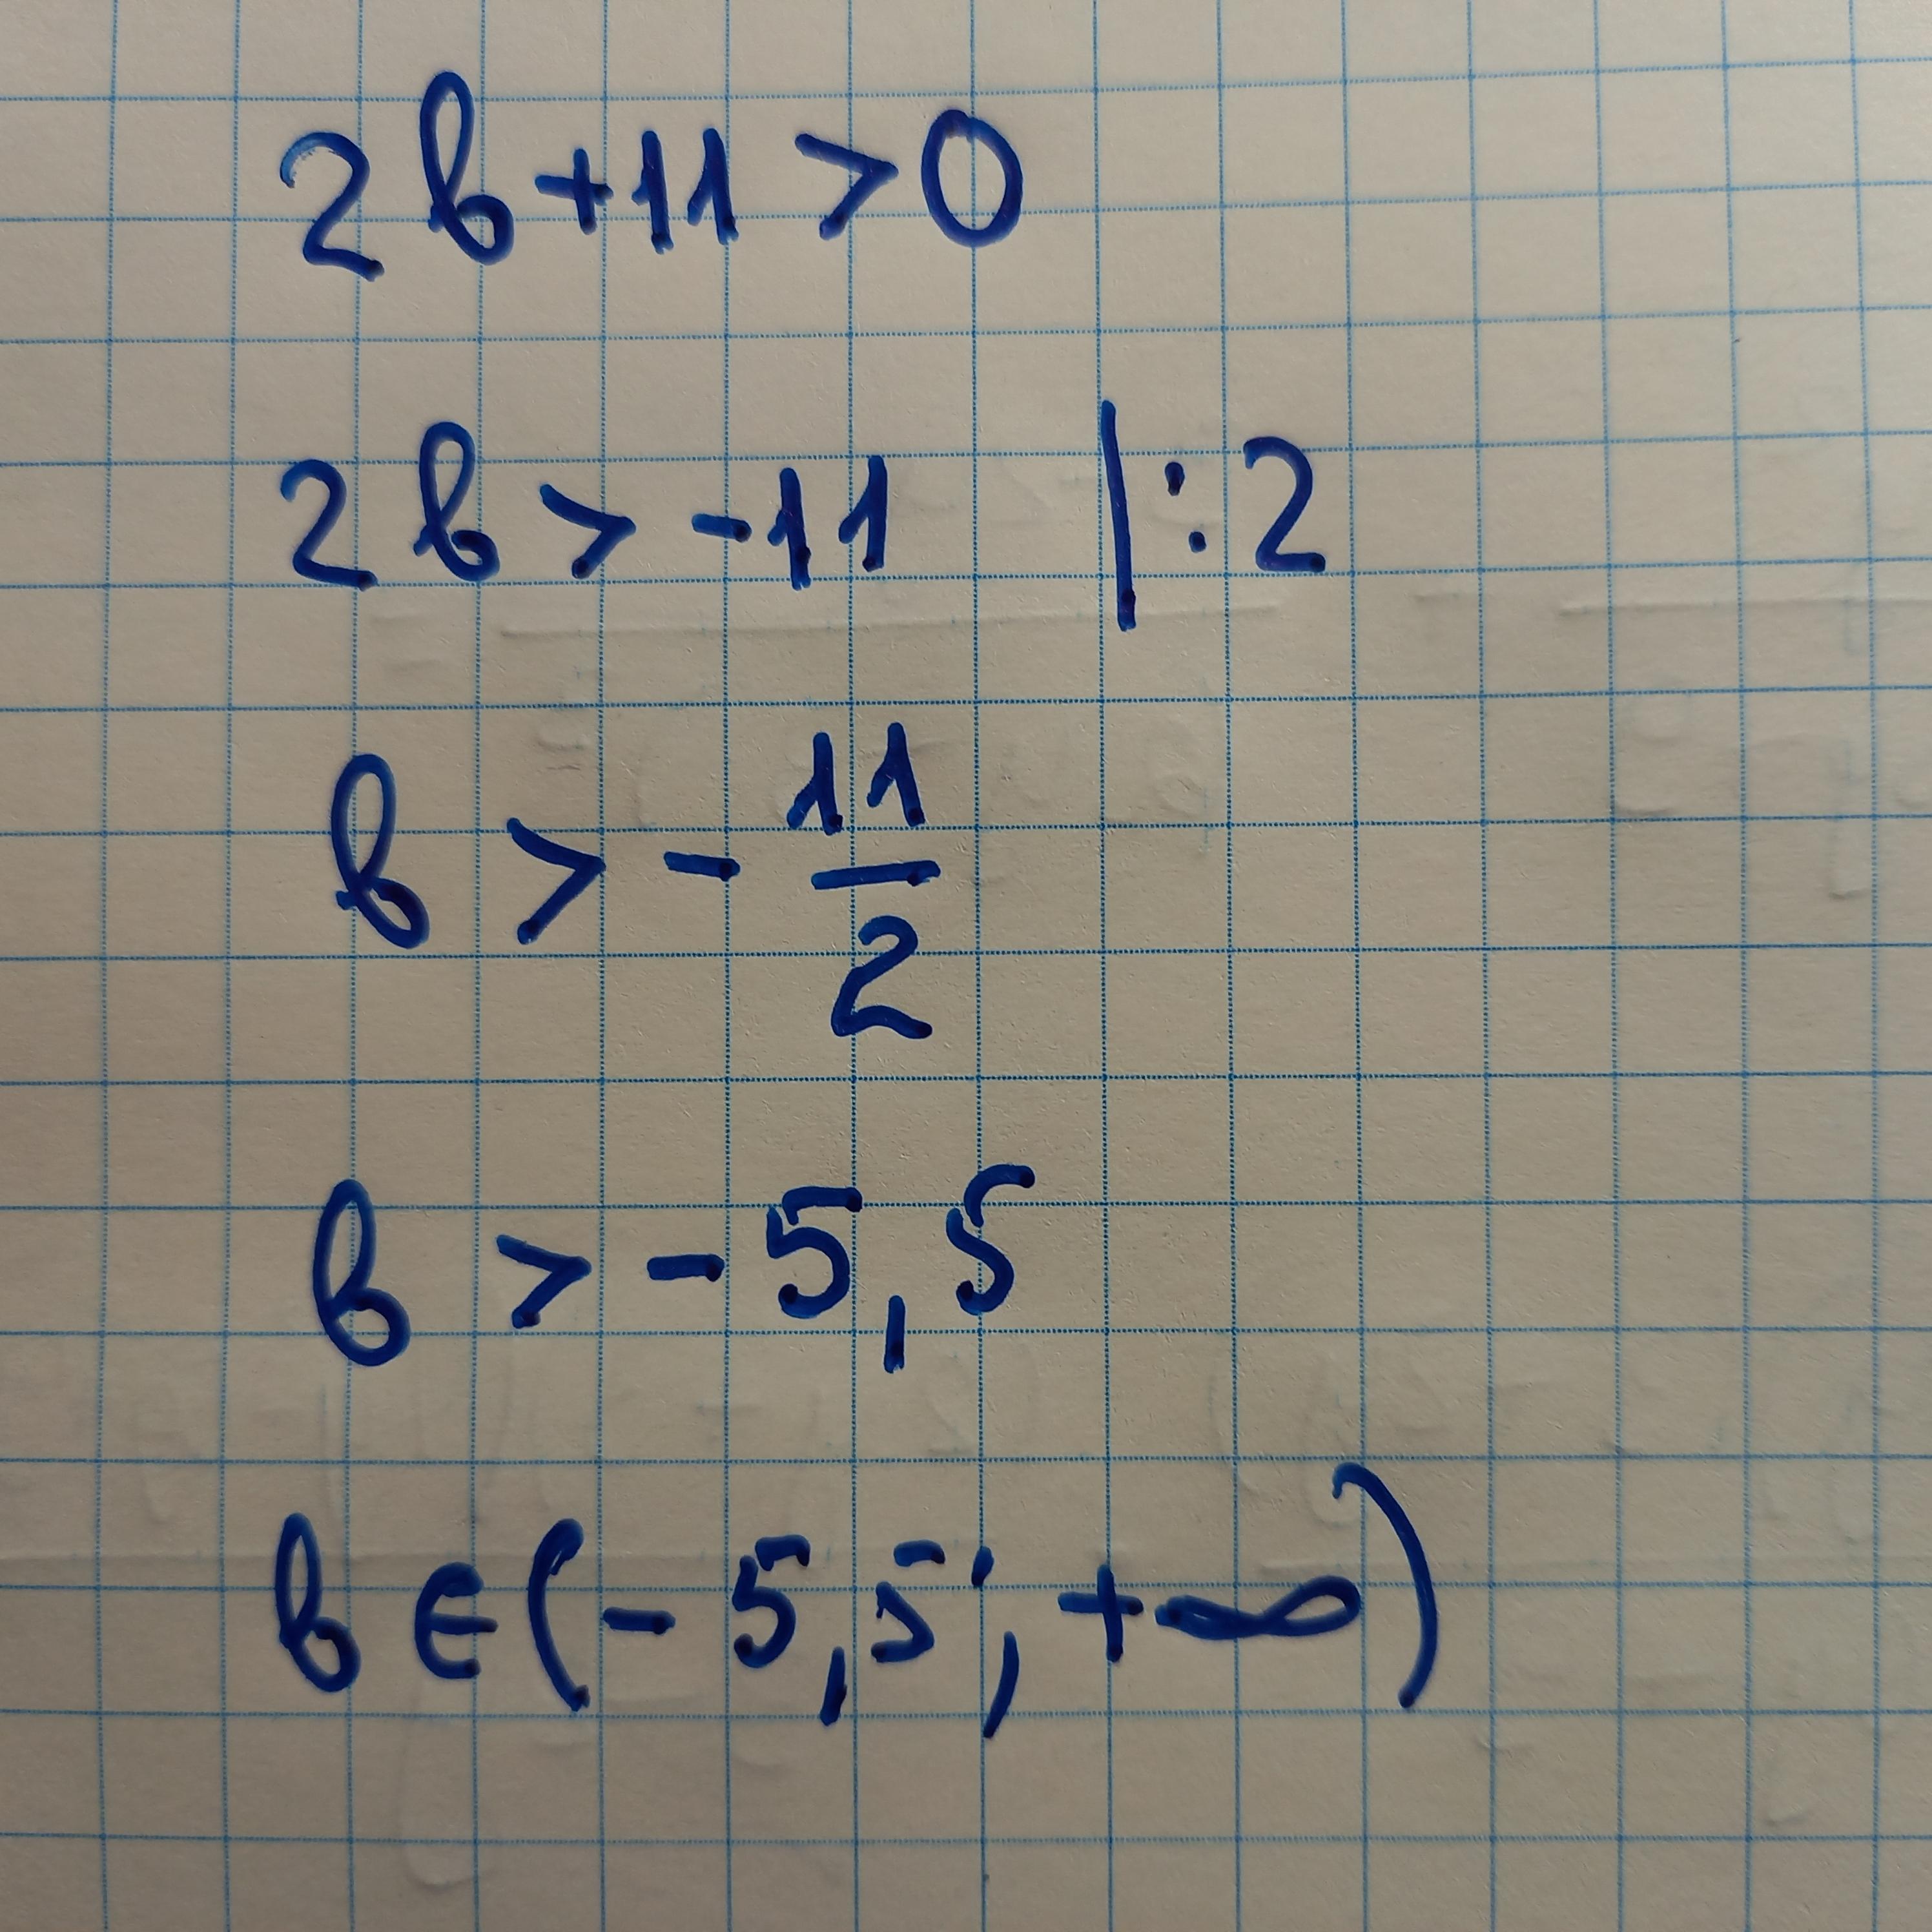 2b+11>0
2b>-11 |:2
b>-11/2
b>-5,5
b∈(-5,5;+∞)